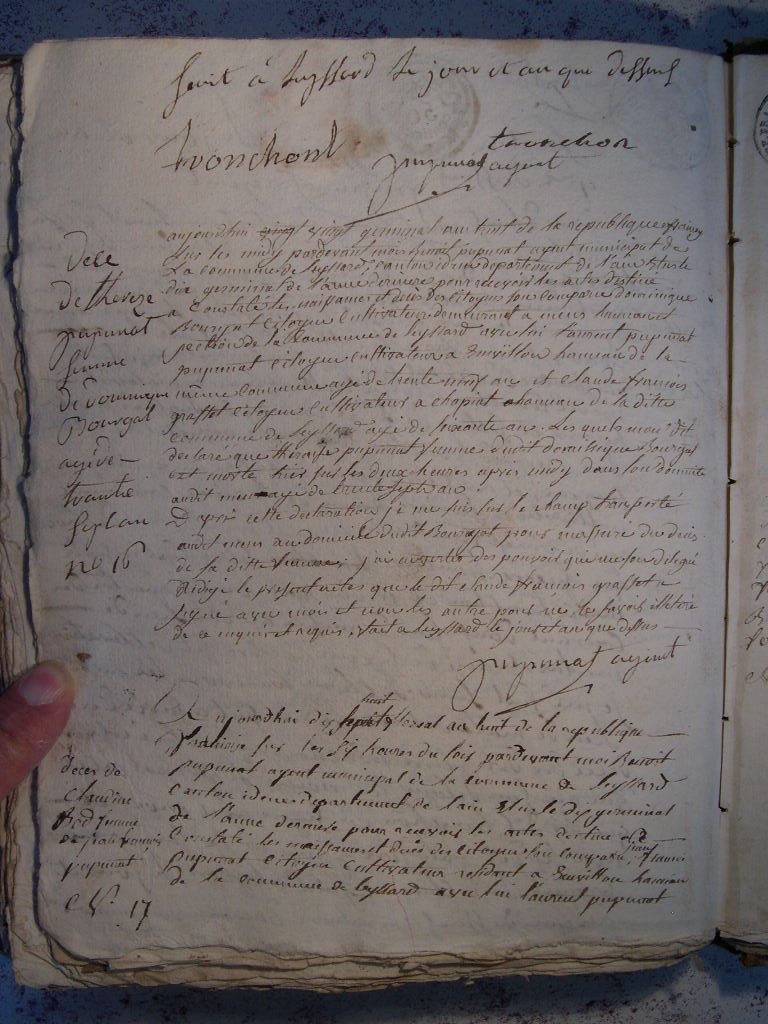 fait à Leyssard le jour et an que dessus
tronchont
tronchon
pupunat agent
Dece
De thereze
pupunat
femme
de dominique
Bourgat
agé de
trante
sept an
no 16
aujourdhui vingt germinal an huit de la republique
sur les midy pardevant mois benoit pupunat agent municipal de
La commune de Leyssard, canton idem departement de l'ain Elus le
dix germinal de l'anne derniere pour recevoir les actes destine
a Constaté les naissances et deces des Citoyens son comparu dominique
Bourgat Citoyen Cultivateur demeurant a
section de la Commune de Leyssard avec lui Laurent pupunat
pupunat Citoyen Cultivateur a hameau de la
même commune agé de trente an et claude francois
graffet Citoyen Cultivateur a chapiat hameau de la ditte
commune de Leyssard agé de soixante an. Les quels mon dit
declaré que therese pupunat femme dudit dominique Bourgat
est morte hier sur les deux heures apres midy dans son domicile
audit agé de trente sept an
D'après cette declaration je me suis sur le champ transporté
au domicile dudit Bourgat pour massuré du deces
de sa ditte femme, j'ai des pouvoir qui me son delegué
Redigé le present actes que le dit claude françois graffet a
signé avec mois et non les autre pour ne le savoir
de ce enquis et requis. fait a Leyssard le jour et an que dessus
pupunat agent
deces de
claudine
femme
de jean francois
pupunat
N°. 17
Aujourdhui dix huit floreal an huit de la republique
francaise sur les six heures du soir pardevant moi Benoit
pupunat agent municipal de la commune de Leyssard
Canton idem departement de l'ain Elus le dix germinal
de l'anne derniere pour recevoir les actes destine
Constaté les naissances et deces des Citoyen son comparu jean francois
pupunat Citoyen Cultivateur residant a hameau
de la commune de Leyssard avec lui Laurent pupunat